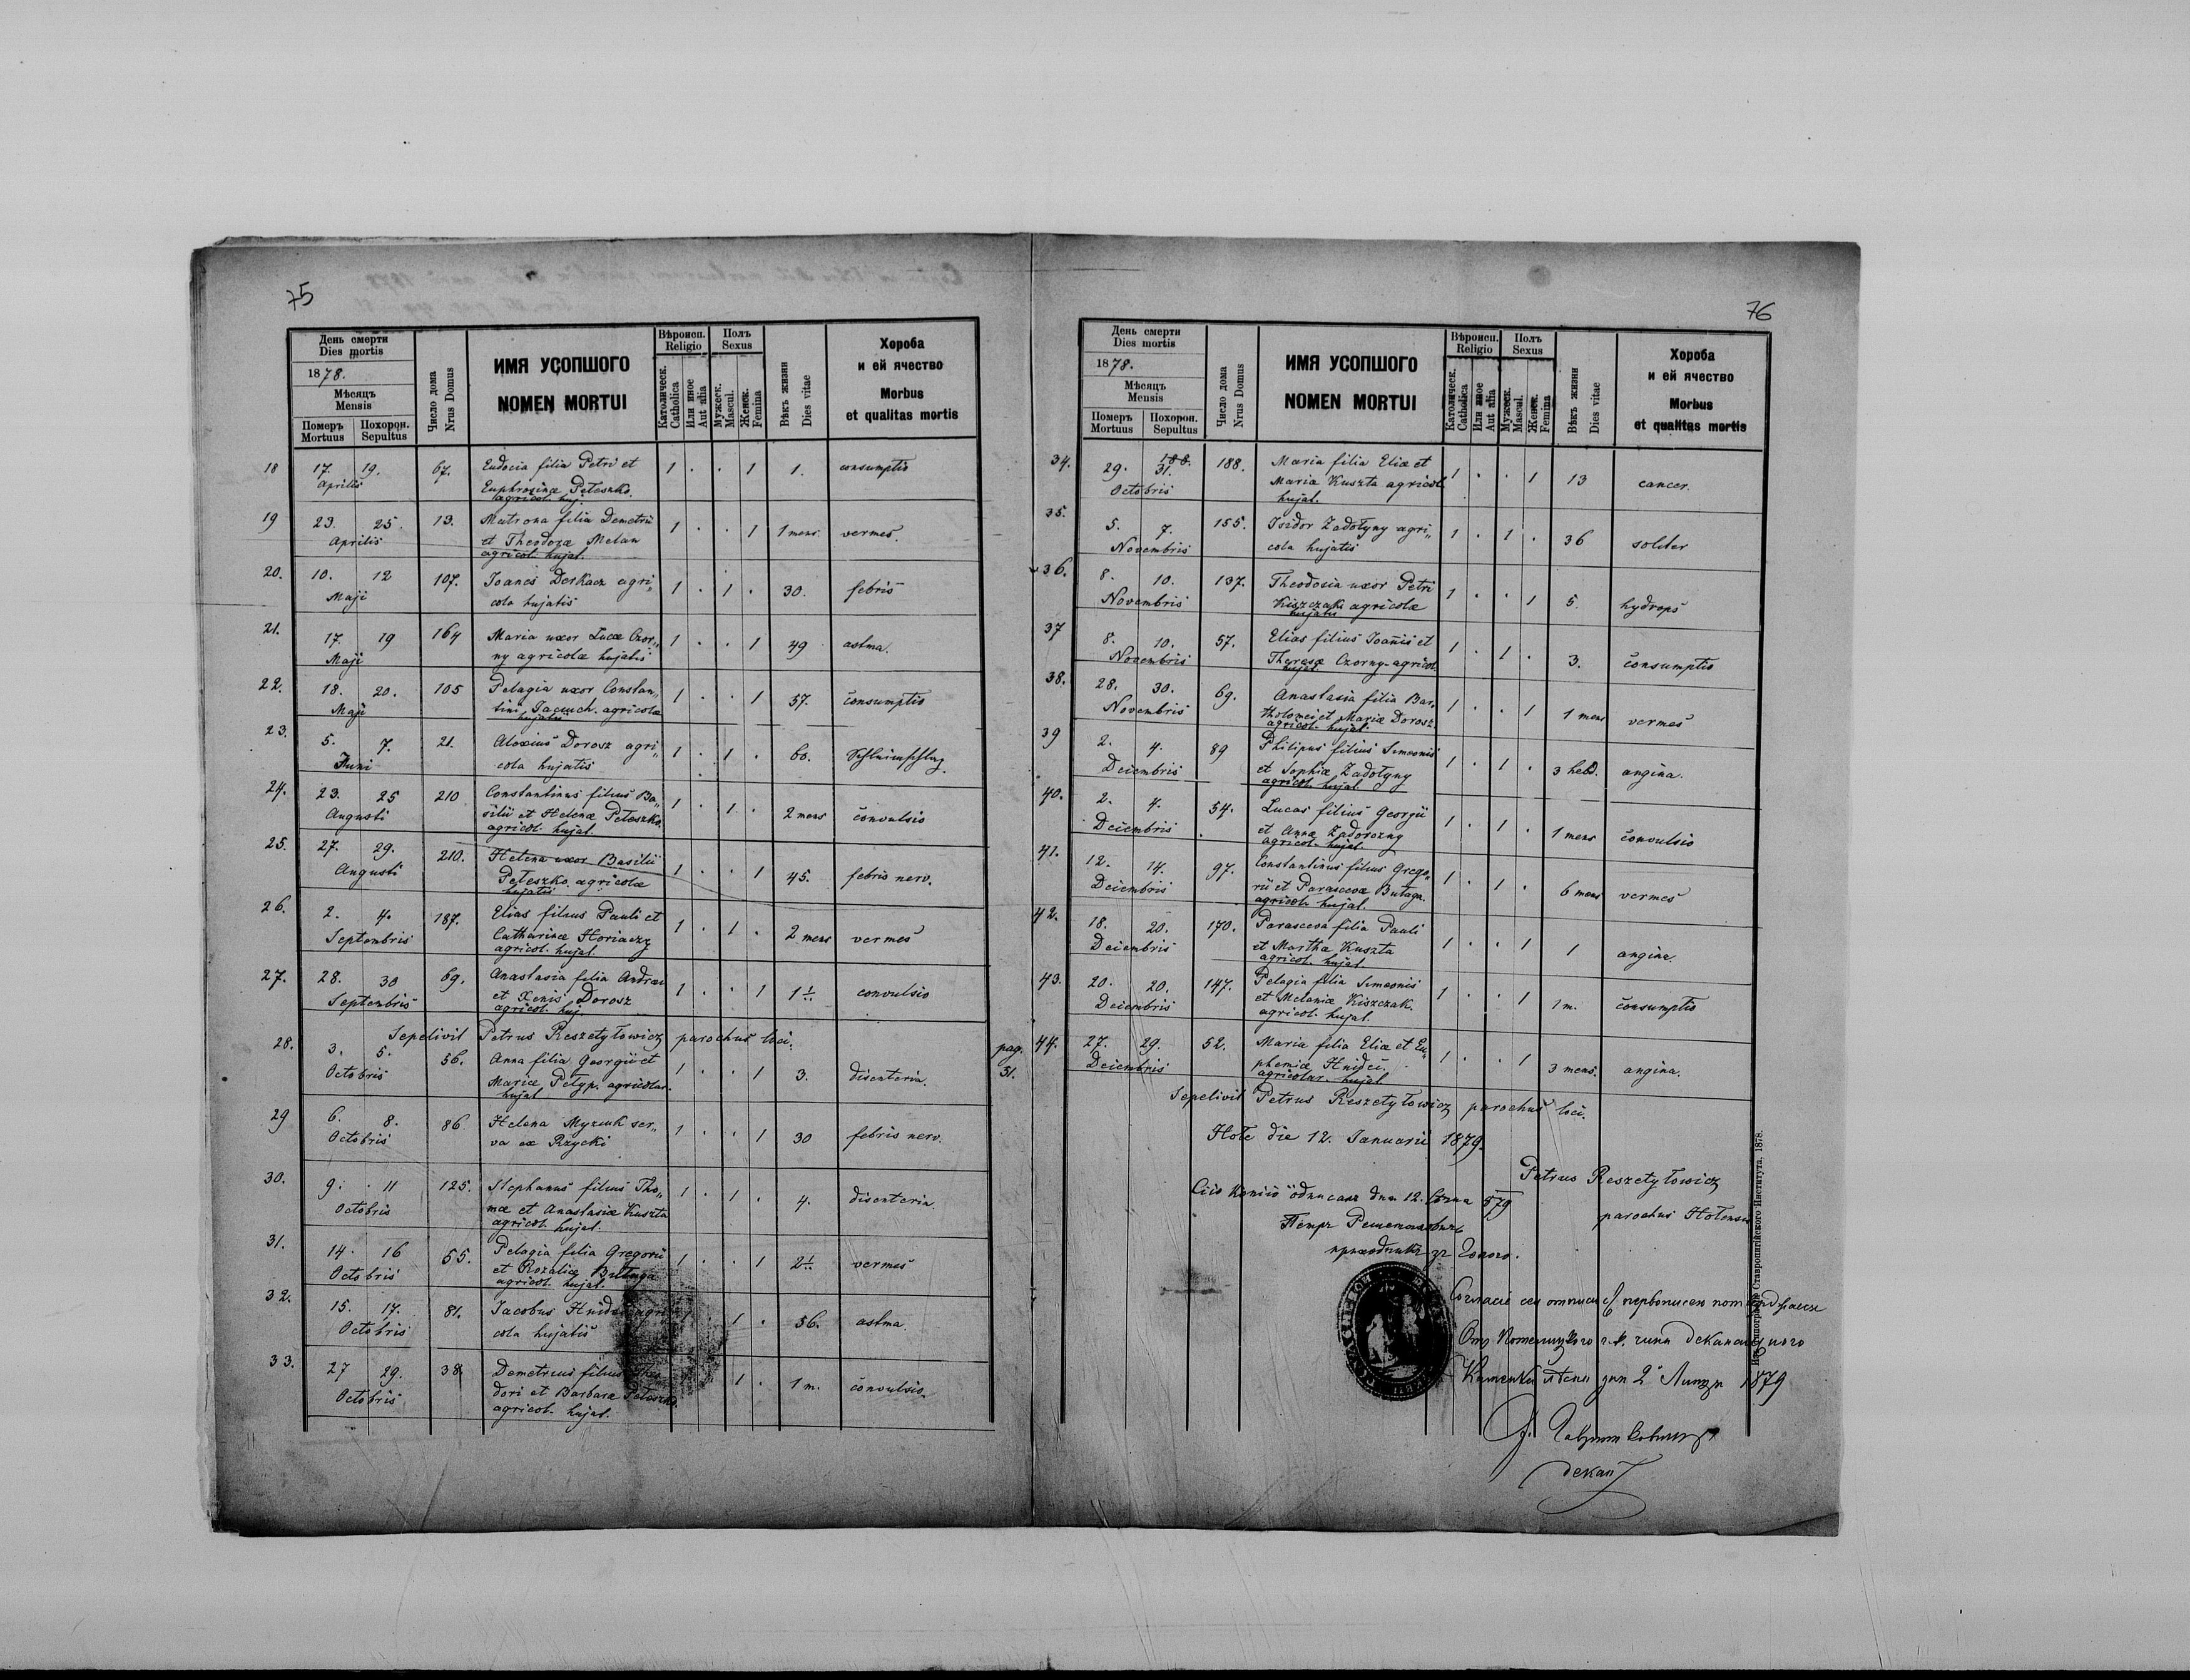 75
День смерти
Dies mortis
1878.
Мѣсяцъ
Mensis
Померъ
Mortuus
Похорон.
Sepultus
Число дома
Nrus Domus
ИМЯ УСОПШОГО
NOMEN MORTUI
Вѣроисп.
Religio
Католическ.
Catholica
Или иное
Aut alia
Полъ
Sexus
Мужеск.
Mascul.
Женск.
Femina
Вѣкъ жизни
Dies vitae
Хороба
и ей ячество
Morbus
et qualitas mortis
18 17. 19. 67. Eudocia filia Petri et 1 . . 1 1. consumptio
Aprilis Euphrosinæ Peteszko.
agricol. huj.
19 23. 25. 13. Matrona filia Demetrii 1 . . 1 1 mens. vermes.
Aprilis et Theodozæ Melan
agricol. hujat.
20. 10. 12 107. Joanes Derkacz agri„ 1 . 1 . 30. febris
Maji cola hujatis
21. 17. 19 164 Maria uxor Lucæ Czor„ 1 . . 1 49 astma.
Maji ny agricolæ hujatis
22. 18. 20. 105 Pelagia uxor Constan„ 1 . . 1 57. consumptio
Maji tini agricolæ
hujatis
23. 5. 7. 21. Aloxius Dorosz agri„ 1 . 1 . 60.
Juni cola hujatis
24. 23. 25 210 Constantinus filius Ba„ 1 . 1 . 2 mens convulsio
Augusti silii et Helenæ Peteszko.
agricol. hujat.
25. 27. 29. 210. Helena uxor Basilii 1 . . 1 45. febris nerv.
Augusti Peteszko agricolæ
hujatis
26. 2. 4. 187. Elias filius Pauli et 1 . 1 . 2 mens vermes
Septembris Catharinæ Horiaczy
agricol. hujat.
27. 28. 30 69. Anastasia filia Andreæ 1 . . 1 1½ convulsio
Septembris et Xenis Dorosz
agricol. huj.
Sepelivit Petrus Reszetyłowicz parochus loci.
28. 3. 5. 56. Anna filia Georgii et 1 . . 1 3. disenteria.
Octobris Mariæ Petyp. agricolar.
hujat.
29 6. 8. 86. Helena Myzuk ser„ 1 . . 1 30 febris nerv.
Octobris va ex Rzycki
30. 9. 11 125. Stephanus filius Tho„ 1 . 1 . 4. disenteria
Octobris mæ et Anastasiæ Kuszta
agricol. hujat.
31. 14. 16 55. Pelagia filia Gregorii 1 . . 1 2½ vermes
Octobris et Rozaliæ Butaga
agricol. hujat.
32. 15. 17. 81. Jacobus 1 . 56. astma.
Octobris cola hujatis
33. 27 29. 38. Demetrius filius 1 . 1 m. convulsio.
Octobris dori et Barbaræ Peteszko.
agricol. hujat.
76
День смерти
Dies mortis
1878.
Мѣсяцъ
Mensis
Померъ
Mortuus
Похорон.
Sepultus
Число дома
Nrus Domus
ИМЯ УСОПШОГО
NOMEN MORTUI
Вѣроисп.
Religio
Католическ.
Catholica
Или иное
Aut alia
Полъ
Sexus
Мужеск.
Mascul.
Женск.
Femina
Вѣкъ жизни
Dies vitae
Хороба
и ей ячество
Morbus
et qualitas mortis
34. 29. 31. 188. Maria filia Eliæ et 1 . . 1 13 cancer.
Octobris Mariæ Kuszta agricol.
hujat.
35. 5. 7. 155. Isidor Zadołyny agri„ 1 . 1 . 36 soliter
Novembris cola hujatis
36. 8. 10. 137. Theodosia uxor Petri 1 . . 1 5. hydrops
Novembris Kiszczak agricolæ
hujatis
37 8. 10. 57. Elias filius Joañis et 1 . 1 . 3. consumptio
Novembris Theresæ Czorny agricol.
hujat.
38. 28. 30. 69. Anastasia filia Bar„ 1 . . 1 1 mens vermes
Novembris tholomei et Mariæ Dorosz.
agricol. hujat.
39 2. 4. 89 Philipus filius Simeonis 1 . 1 . 3 hebd. angina.
Decembris et Sophiæ Zadołyny
agricol. hujat.
40. 2. 4. 54. Lucas filius Georgii 1 . 1 . 1 mens convulsio
Decembris et Annæ Zadorozny
agricol. hujat.
41. 12. 14. 97. Constantinus filius Grego„ 1 . 1 . 6 mens vermes
Decembris rii et Parascevæ Butaga.
agricol. hujat.
42. 18. 20. 170. Parasceva filia Pauli 1 . . 1 1 angina.
Decembris et Marthæ Kuszta
agricol. hujat.
43. 20. 20. 147. Pelagia filia Simeonis 1 . . 1 1 m. consumptio
Decembris et Melaniæ Kiszczak.
agricol. hujat.
pag. 31.
44. 27. 29. 52. Maria filia Eliæ et Eu„ 1 . . 1 3 mens. angina.
Decembris phemiæ Hnideć.
agricolar. hujat
Sepelivit Petrus Reszetyłowicz parochus loci.
Hołe die 12. Januarii 1879.
Petrus Reszetyłowicz
parochus
Сію Копію дня 12.
Петръ
приходникъ
1879
декан
Изъ типографіи Ставропигійского Института, 1878.